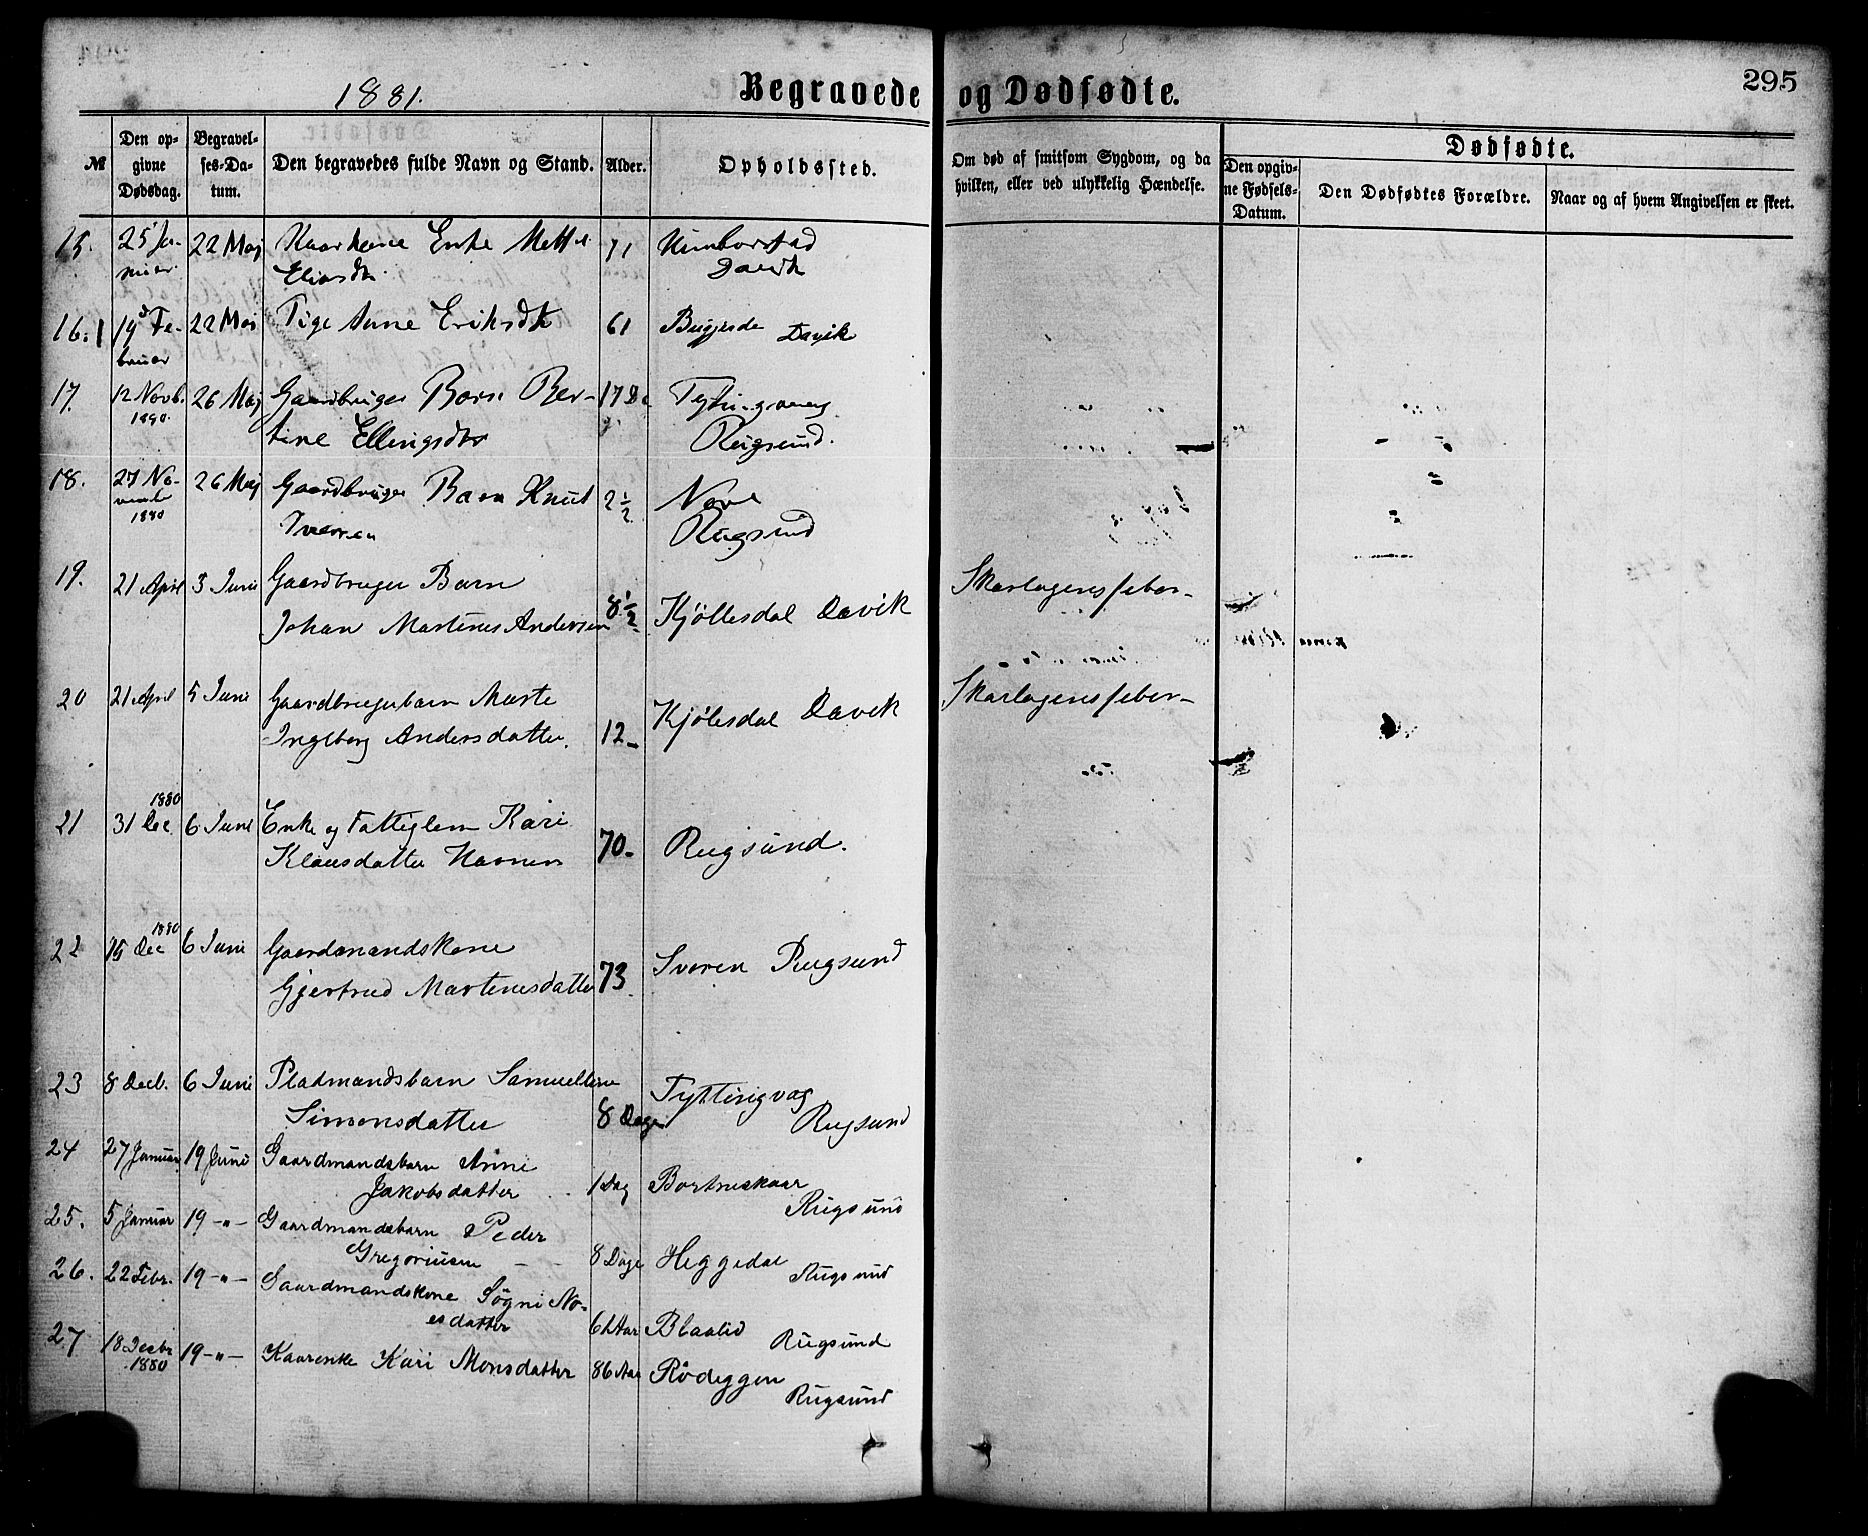 295
1881.
Begravede og Dødfødte.
№
Den op-
givne
Dødsdag.
Begravel-
ses-Da-
tum.
Den begravedes fulde Navn og Stand.
Alder.
Opholdssted.
Om død af smitsom Sygdom, og da
hvilken, eller ved ulykkelig Hændelse.
Dødfødte.
Den opgiv-
ne Fødsels-
Datum.
Den Dødfødtes Forældre.
Naar og af hvem Angivelsen er skeet.
15. 25 Ja- 22 Maj Enke 71
nuar Eliasdtr Davik
16. 19 Fe- 22 Maj Pige Anne Eriksdtr 61 Davik
bruar
17. 12 Novb. 26 Maj Gaardbruger Barn Ber- 17 D
1880. tine Ellingsdtr Rugsund.
18. 27 No- 26 Maj Gaardbruger Barn Knut 2½ Nave
vember Iversen Rugsund
1880
19. 21 April 3 Juni Gaardbruger Barn Skarlagensfeber-
Johan Martenes Andersen 8½ Kjöllesdal Davik
20 21 April 5 Juni Gaardbrugerbarn Marte Skarlagensfeber-
Ingeborg Andersdatter. 12- Kjölesdal Davik
1880
21 31 Dec. 6 Juni Enke og Fattiglem Kari
Klausdatter Havnen 70- Rugsund.
1880
22 15 Dec 6 Juni Gaardmandskone
Gjertrud Martenusdatter 73 Svoren Rugsund
23 8 Decb. 6 Juni Pladsmandsbarn Samueline Tyttingvag
Simonsdatter 8 Dage Rugsund
24 27 Januar 19 Juni Gaardmandsbarn Anne
Jakobsdatter 1 Dag Bortneskaar
Rugsund
25. 5 Januar 19 -"- Gaardmandsbarn Peder
Gregoriusen 8 Dage Heggedal
Rugsund
26. 22 Febr. 19 -"- Gaardmandskone Sögni No-
esdatter 61 Aar Blaalid
Rugsund
27 18 Decbr 19 -"- Kaarenke Kari Monsdatter 86 Aar Rödeggen
1880 Rugsund